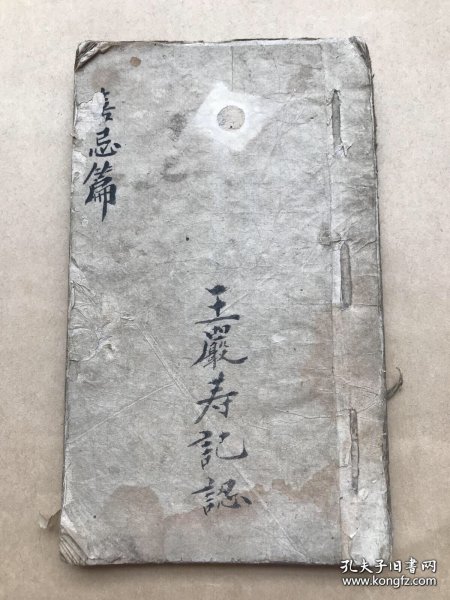 喜忌篇
王嚴寿記認
孔夫子旧书网
www.kongfz.com